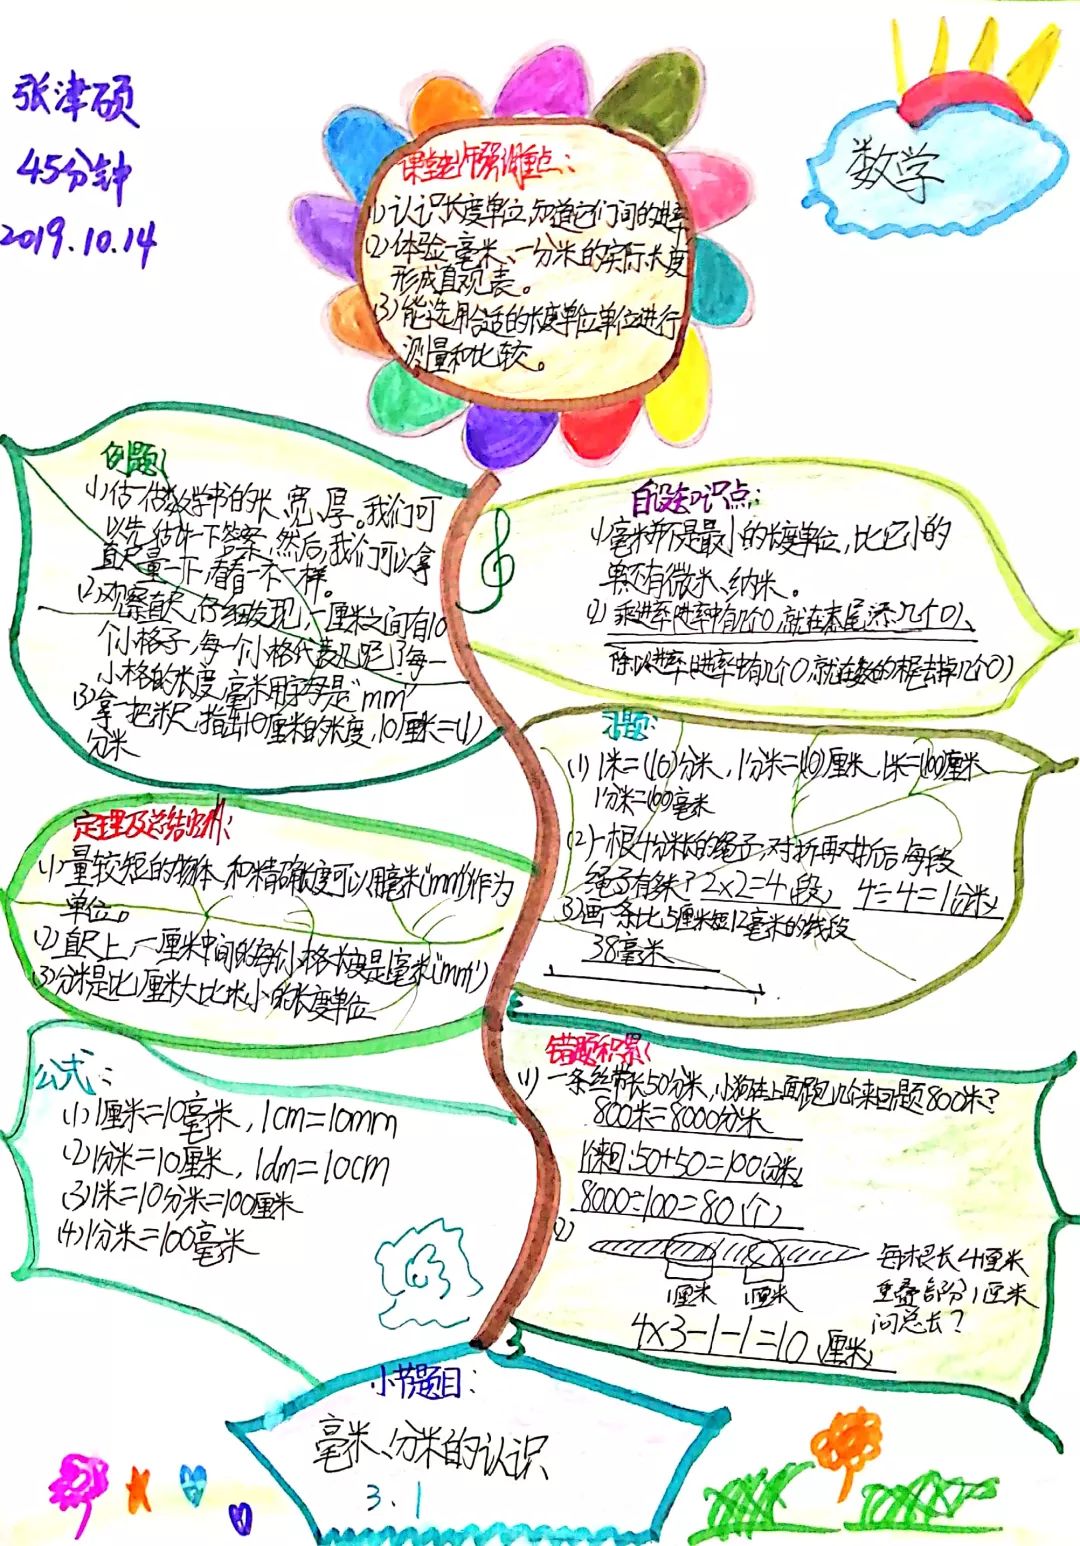 张津硕
45分钟
2019.10.14
数学
课堂老师强调重点:
(1)认识长度单位,知道它们间的进率
(2)体验一毫米、一分米的实际长度
形成直观表。
(3)能选用合适的长度单位单位进行
测量和比较。
例题:
(1)估一估数学书的长、宽、厚。我们可
以先估件一下答案,然后,我们可以拿
直尺量一下,看看一不一样。
(2)观察直尺,仔细发现,一厘米之间有10
个小格子,每一个小格代表几呢?每一
小格的长度,毫米用字母是"mm"
(3)拿一把米尺,指出10厘米的长度,10厘米=(1)
分米
自设知识点:
(1)毫米并不是最小的长度单位,比它小的
单位有微米、纳米。
(2)乘进率(进率中有几个0,就在末尾添几个0)、
除以进率(进率中有几个0,就在数的末尾去掉几个0)
习题:
(1)1米=(10)分米,1分米=(10)厘米,1米=(100)厘米
1分米=(100)毫米
(2)一根4分米长的绳子,对折再对折后,每段
绳子有多长?2×2=4(段) 4÷4=1(分米)
(3)画一条比5厘米短12毫米的线段
38毫米
定理及总结
(1)量较短的物体,和精确长度可以用毫米("mm")作为
单位。
(2)直尺上,一厘米中间的每个小格长度是1毫米("mm")
(3)分米是比厘米大比米小的长度单位
公式:
(1)1厘米=10毫米,1cm=10mm
(2)1分米=10厘米,1dm=10cm
(3)1米=10分米=100厘米
(4)1分米=100毫米
错题积累:
(1)一条丝带长50分米,小狗在上面跑几个来回是800米?
800米=8000分米
1个来回:50+50=100(分米)
8000÷100=80(个)
(2)
每根长4厘米
重叠部分1厘米
问总长?
1厘米 1厘米
4×3-1-1=10(厘米)
小节题目:
毫米、分米的认识
3.1